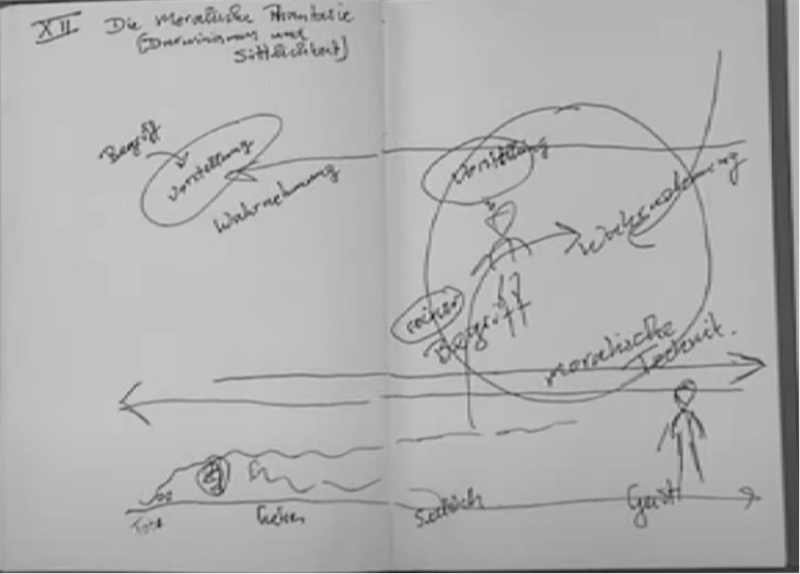 XII Die moralische Phantasie
(Darwinismus und
Sittlichkeit)
Begriff
Vorstellung
Wahrnehmung
Vorstellung
Wahrnehmung
reiner
Begriff
moralische
Technik.
Geist